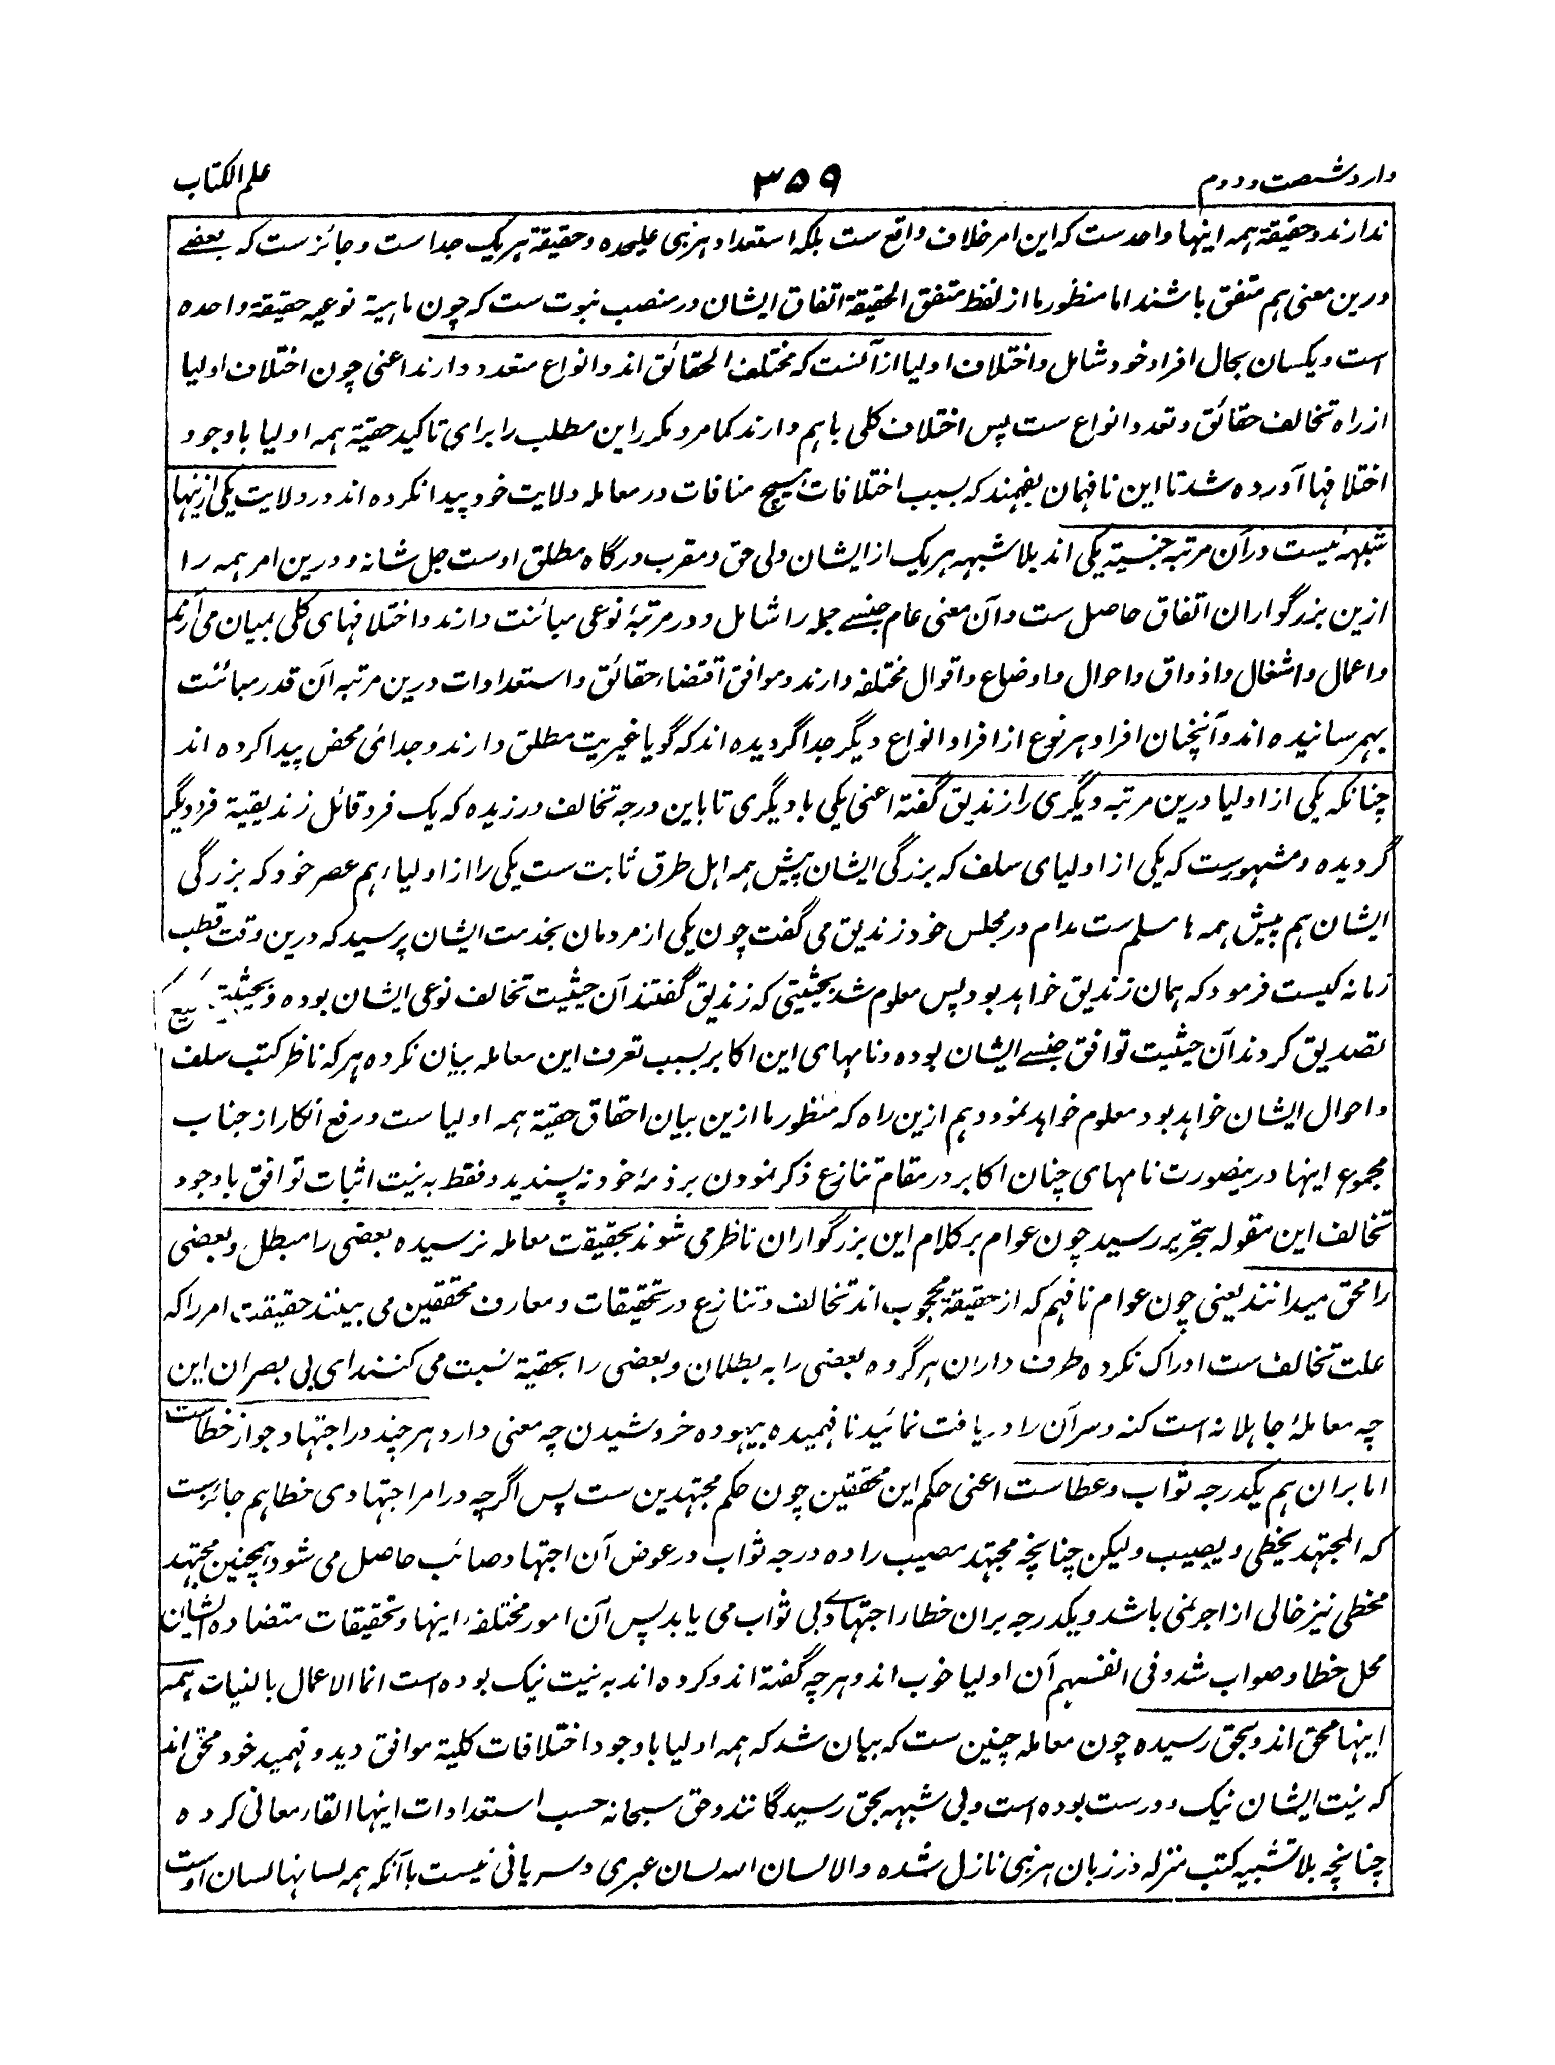 وارد شصت و دوم
۳۵۹
علم الکتاب
ندارند و حقیقة همه اینها واحد ست که این امر خلاف واقع ست بلکه استعداد هر نبی علیحده و حقیقة هر یک جدا ست و جائز ست که بعضے
درین معنی هم متفق باشند اما منظور ما از لفظ متفق الحقیقة اتفاق ایشان در منصب نبوت ست که چون ماهیة نوعیه حقیقة واحده
است و یکسان بحال افراد خود شامل و اختلاف اولیا از آنست که مختلف الحقائق اند و انواع متعدد دارند اعنی چون اختلاف اولیا
از راه تخالف حقائق و تعدد انواع ست پس اختلاف کلی باهم دارند کما مر و مکرر این مطلب را برای تاکید حقیة همه اولیا باوجود
اختلافها آورده شد تا این نافهمان بفهمند که بسبب اختلافات هیچ منافات در معامله ولایت خود پیدا نکرده اند و در ولایت یکی ازینها
شبهه نیست در آن مرتبه جنسیة یکی اند بلا شبهه هر یک از ایشان ولی حق و مقرب درگاه مطلق اوست جل شانه و درین امر همه را
ازین بزرگواران اتفاق حاصل ست و آن معنی عام جنسے جمله را شامل و در مرتبهٔ نوعی مبائنت دارند و اختلافهای کلی بمیان می آرند
و اعمال و اشغال و اذواق و احوال و اوضاع و اقوال مختلفه دارند و موافق اقتضاء حقائق و استعدادات درین مرتبه آن قدر مبائنت
بهم رسانیده اند و آنچنان افراد هر نوع از افراد انواع دیگر جدا گردیده اند که گویا غیریت مطلق دارند و جدائی محض پیدا کرده اند
چنانکه یکی از اولیا درین مرتبه دیگری را زندیق گفته اعنی یکی با دیگری تا باین درجه تخالف ورزیده که یک فرد قائل زندیقیة فرد دیگر
گردیده و مشهورست که یکی از اولیای سلف که بزرگی ایشان پیش همه اهل طرق ثابت ست یکی را از اولیاء هم عصر خود که بزرگی
ایشان هم پیش همه ها مسلم ست مدام در مجلس خود زندیق می گفت چون یکی از مردمان بخدمت ایشان پرسید که درین وقت قطب
زمانه کیست فرمود که همان زندیق خواهد بود پس معلوم شد بحیثیتی که زندیق گفتند آن حیثیت تخالف نوعی ایشان بوده و بحیثیتی
تصدیق کردند آن حیثیت توافق جنسے ایشان بوده و نامهای این اکابر بسبب تعرف این معامله بیان نکرده هر که ناظر کتب سلف
و احوال ایشان خواهد بود معلوم خواهد نمود و هم ازین راه که منظور ما ازین بیان احقاق حقیة همه اولیا ست و رفع انکار از جناب
مجموع اینها درینصورت نامهای چنان اکابر در مقام تنازع ذکر نمودن بر ذمهٔ خود نه پسندید و فقط به نیت اثبات توافق باوجود
تخالف این مقوله بتحریر رسید چون عوام بر کلام این بزرگواران ناظر می شوند بحقیقت معامله نرسیده بعضی را مبطل و بعضی
را محق میدانند یعنی چون عوام نافهم که از حقیقة محجوب اند تخالف و تنازع در تحقیقات و معارف محققین می بینند حقیقت امر را که
علت تخالف ست ادراک نکرده طرف داران هر گروه بعضی را به بطلان و بعضی را بحقیة نسبت می کنند ای بی بصران این
چه معاملهٔ جاهلانه است کنه و سر آن را دریافت نمائید نافهمیده بیهوده خروشیدن چه معنی دارد هر چند در اجتهاد جواز خطاست
اما بران هم یکدرجه ثواب و عطاست اعنی حکم این محققین چون حکم مجتهدین ست پس اگرچه در امر اجتهادی خطا هم جائزست
که المجتهد یخطی و یصیب ولیکن چنانچه مجتهد مصیب را ده درجه ثواب در عوض آن اجتهاد صائب حاصل می شود همچنین مجتهد
مخطی نیز خالی از اجر نمی باشد و یکدرجه بران خطاء اجتهادے وبی ثواب می یابد پس آن امور مختلفهٔ اینها و تحقیقات متضاده ایشان
محل خطا و صواب شد و فی انفسهم آن اولیا خوب اند و هر چه گفته اند و کرده اند به نیت نیک بوده است انما الاعمال بالنیات همه
اینها محق اند و بحق رسیده چون معامله چنین ست که بیان شد که همه اولیا باوجود اختلافات کلیة موافق دید و فهمید خود محق اند
که نیت ایشان نیک و درست بوده است و بی شبهه بحق رسیدگانند و حق سبحانه حسب استعدادات اینها القاء معانی کرده
چنانچه بلا تشبیه کتب منزله در زبان هر نبی نازل شده و الا لسان الله لسان عبری و سریانی نیست با آنکه همه لسانها لسان اوست